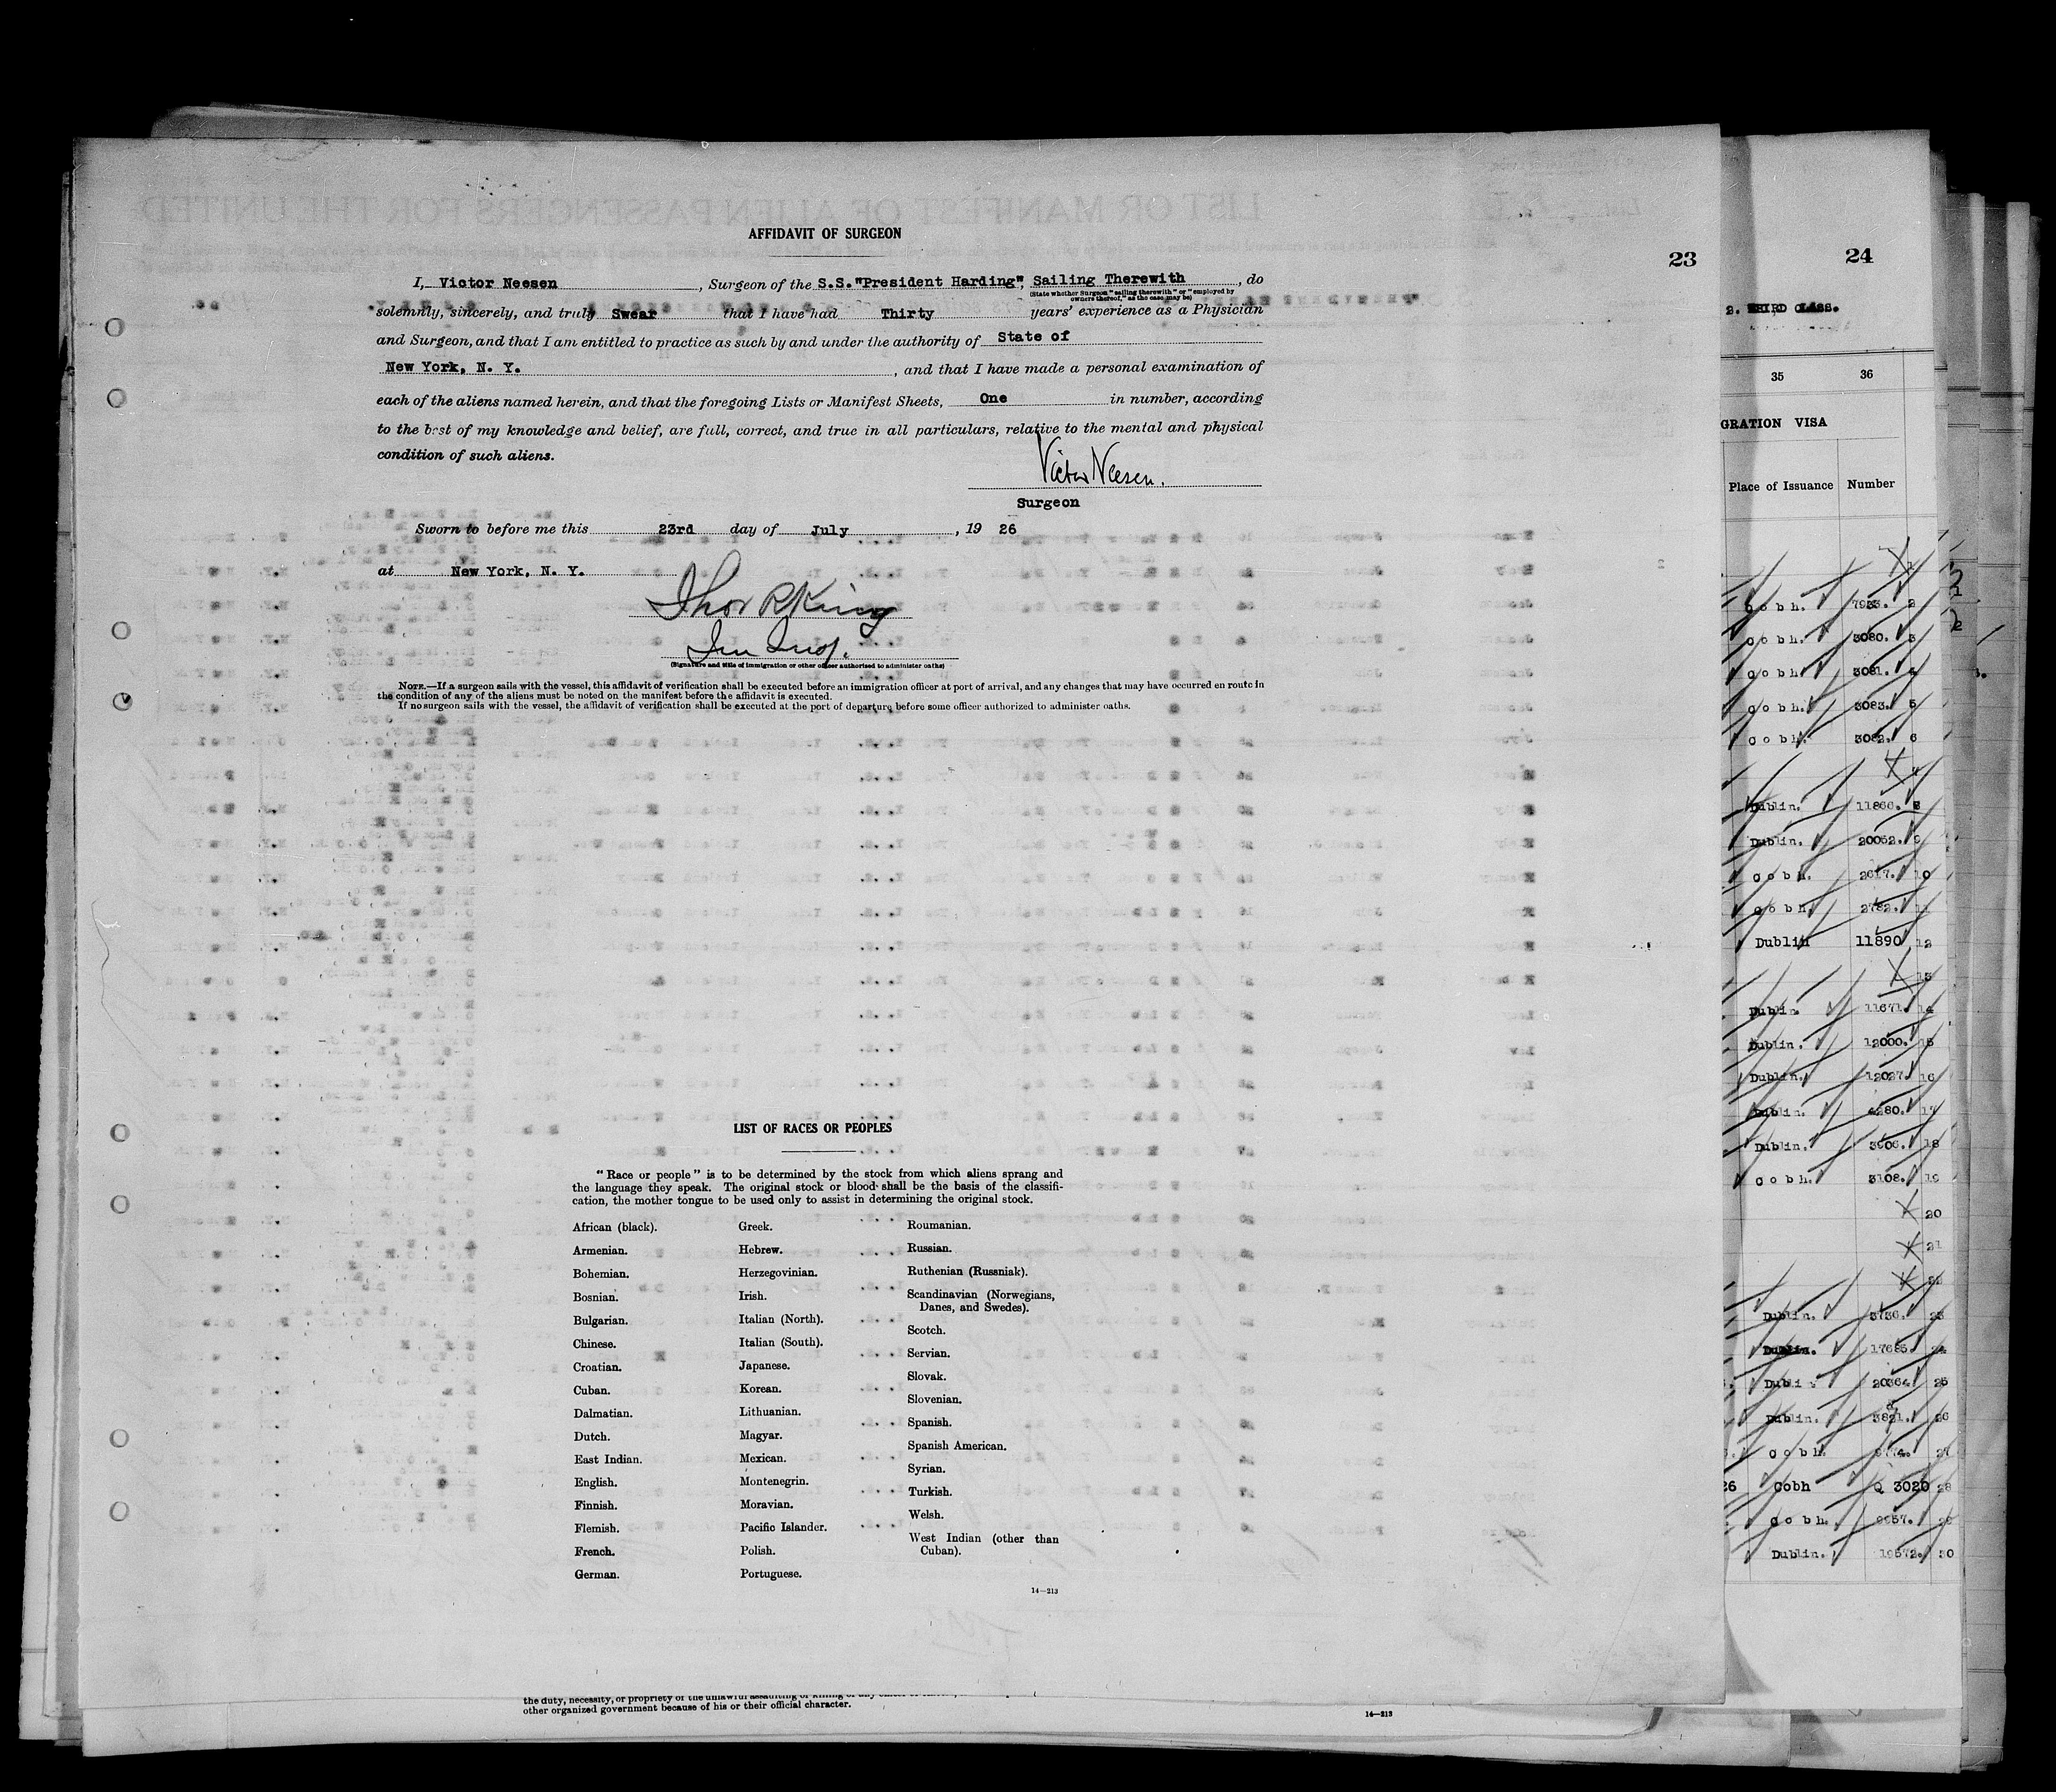 AFFIDAVIT OF SURGEON
23
I, Victor Neesen, Surgeon of the S.S."President Harding", Sailing Therewith, do
(State whether Surgeon "sailing therewith" or "employed by
owners thereof," as the case may be)
solemnly, sincerely, and truly Swear that I have had Thirty years' experience as a Physician
and Surgeon, and that I am entitled to practice as such by and under the authority of State of
New York, N. Y., and that I have made a personal examination of
each of the aliens named herein, and that the foregoing Lists or Manifest Sheets, One in number, according
to the best of my knowledge and belief, are full, correct, and true in all particulars, relative to the mental and physical
condition of such aliens.
Victor Neesen.
Surgeon
Sworn to before me this 23rd day of July, 19 26
at New York, N. Y.
Thos R King
Im Insp.
(Signature and title of immigration or other officer authorized to administer oaths)
NOTE.—If a surgeon sails with the vessel, this affidavit of verification shall be executed before an immigration officer at port of arrival, and any changes that may have occurred en route in
the condition of any of the aliens must be noted on the manifest before the affidavit is executed.
If no surgeon sails with the vessel, the affidavit of verification shall be executed at the port of departure before some officer authorized to administer oaths.
LIST OF RACES OR PEOPLES
"Race or people" is to be determined by the stock from which aliens sprang and
the language they speak. The original stock or blood shall be the basis of the classifi-
cation, the mother tongue to be used only to assist in determining the original stock.
African (black).
Armenian.
Bohemian.
Bosnian.
Bulgarian.
Chinese.
Croatian.
Cuban.
Dalmatian.
Dutch.
East Indian.
English.
Finnish.
Flemish.
French.
German.
Greek.
Hebrew.
Herzegovinian.
Irish.
Italian (North).
Italian (South).
Japanese.
Korean.
Lithuanian.
Magyar.
Mexican.
Montenegrin.
Moravian.
Pacific Islander.
Polish.
Portuguese.
Roumanian.
Russian.
Ruthenian (Russniak).
Scandinavian (Norwegians,
Danes, and Swedes).
Scotch.
Servian.
Slovak.
Slovenian.
Spanish.
Spanish American.
Syrian.
Turkish.
Welsh.
West Indian (other than
Cuban).
14—213
the duty, necessity, or propriety of the unlawful assaulting or killing of any
other organized government because of his or their official character.
14—213
24
2. THIRD CLASS.
35 36
GRATION VISA
Place of Issuance Number
Cobh. 7933. 2
Cobh. 3080. 3
Cobh 3081. 4
Cobh. 3083. 5
Cobh. 3082. 6
Dublin. 11866. 8
Dublin. 20052. 9
Cobh. 2617. 10
Cobh. 2782. 11
Dublin 11890 12
13
Dublin 11671. 14
Dublin. 12000. 15
Dublin. 12037. 16
Dublin. 4280. 17
Dublin. 3906. 18
Cobh. 3108. 19
20
21
22
Dublin. 3736. 23
Dublin. 17685. 24
Dublin 20364. 25
Dublin. 3821. 26
Cobh. 27
26 Cobh Q 3020 28
Cobh. 29
Dublin. 19572. 30